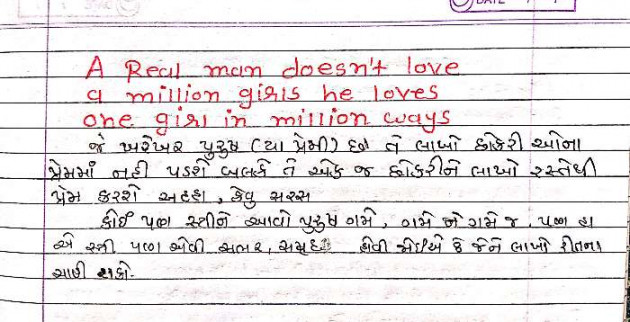 DATE
A Real man doesn't love
a million girls he loves
one girl in million ways
જે ખરેખર પુરુષ (યા પ્રેમી) હશે તે લાખો છોકરી ઓના
પ્રેમમાં નહી પડશે બલકે તે એક જ છોકરીને લાખો રસ્તેથી
પ્રેમ કરશે અહહા, કેવુ સરસ
કોઈ પણ સ્ત્રીને આવો પુરુષ ગમે, ગમે ને ગમે જ, પણ હા
એ સ્ત્રી પણ એવી સભર, સમૃદ્ધ હોવી જોઈએ કે જેને લાખો રીતના
ચાહી શકો.